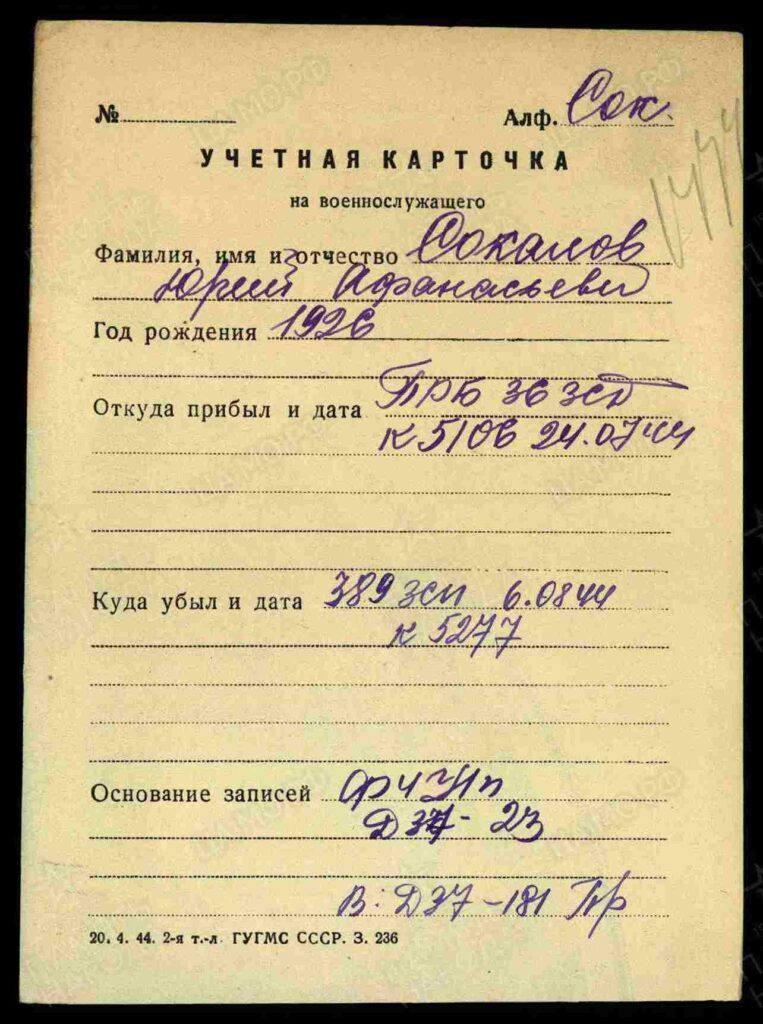 № Алф. Сок.
УЧЕТНАЯ КАРТОЧКА
на военнослужащего
Фамилия, имя и отчество Сокалов
Юрий Афанасьеви
Год рождения 1926
Откуда прибыл и дата ПРБ 36 зсд
к 5106 24.07 44
Куда убыл и дата 389 зсп 6.08 44
к 5277
Основание записей
Д37- 23
В: Д37-181
20. 4. 44. 2-я т.-л ГУГМС СССР. З. 236